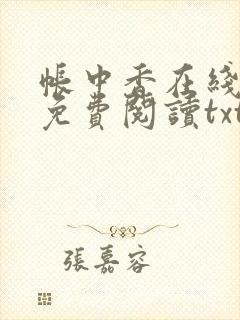 帳中香在綫
免費閱讀txt
張嘉容